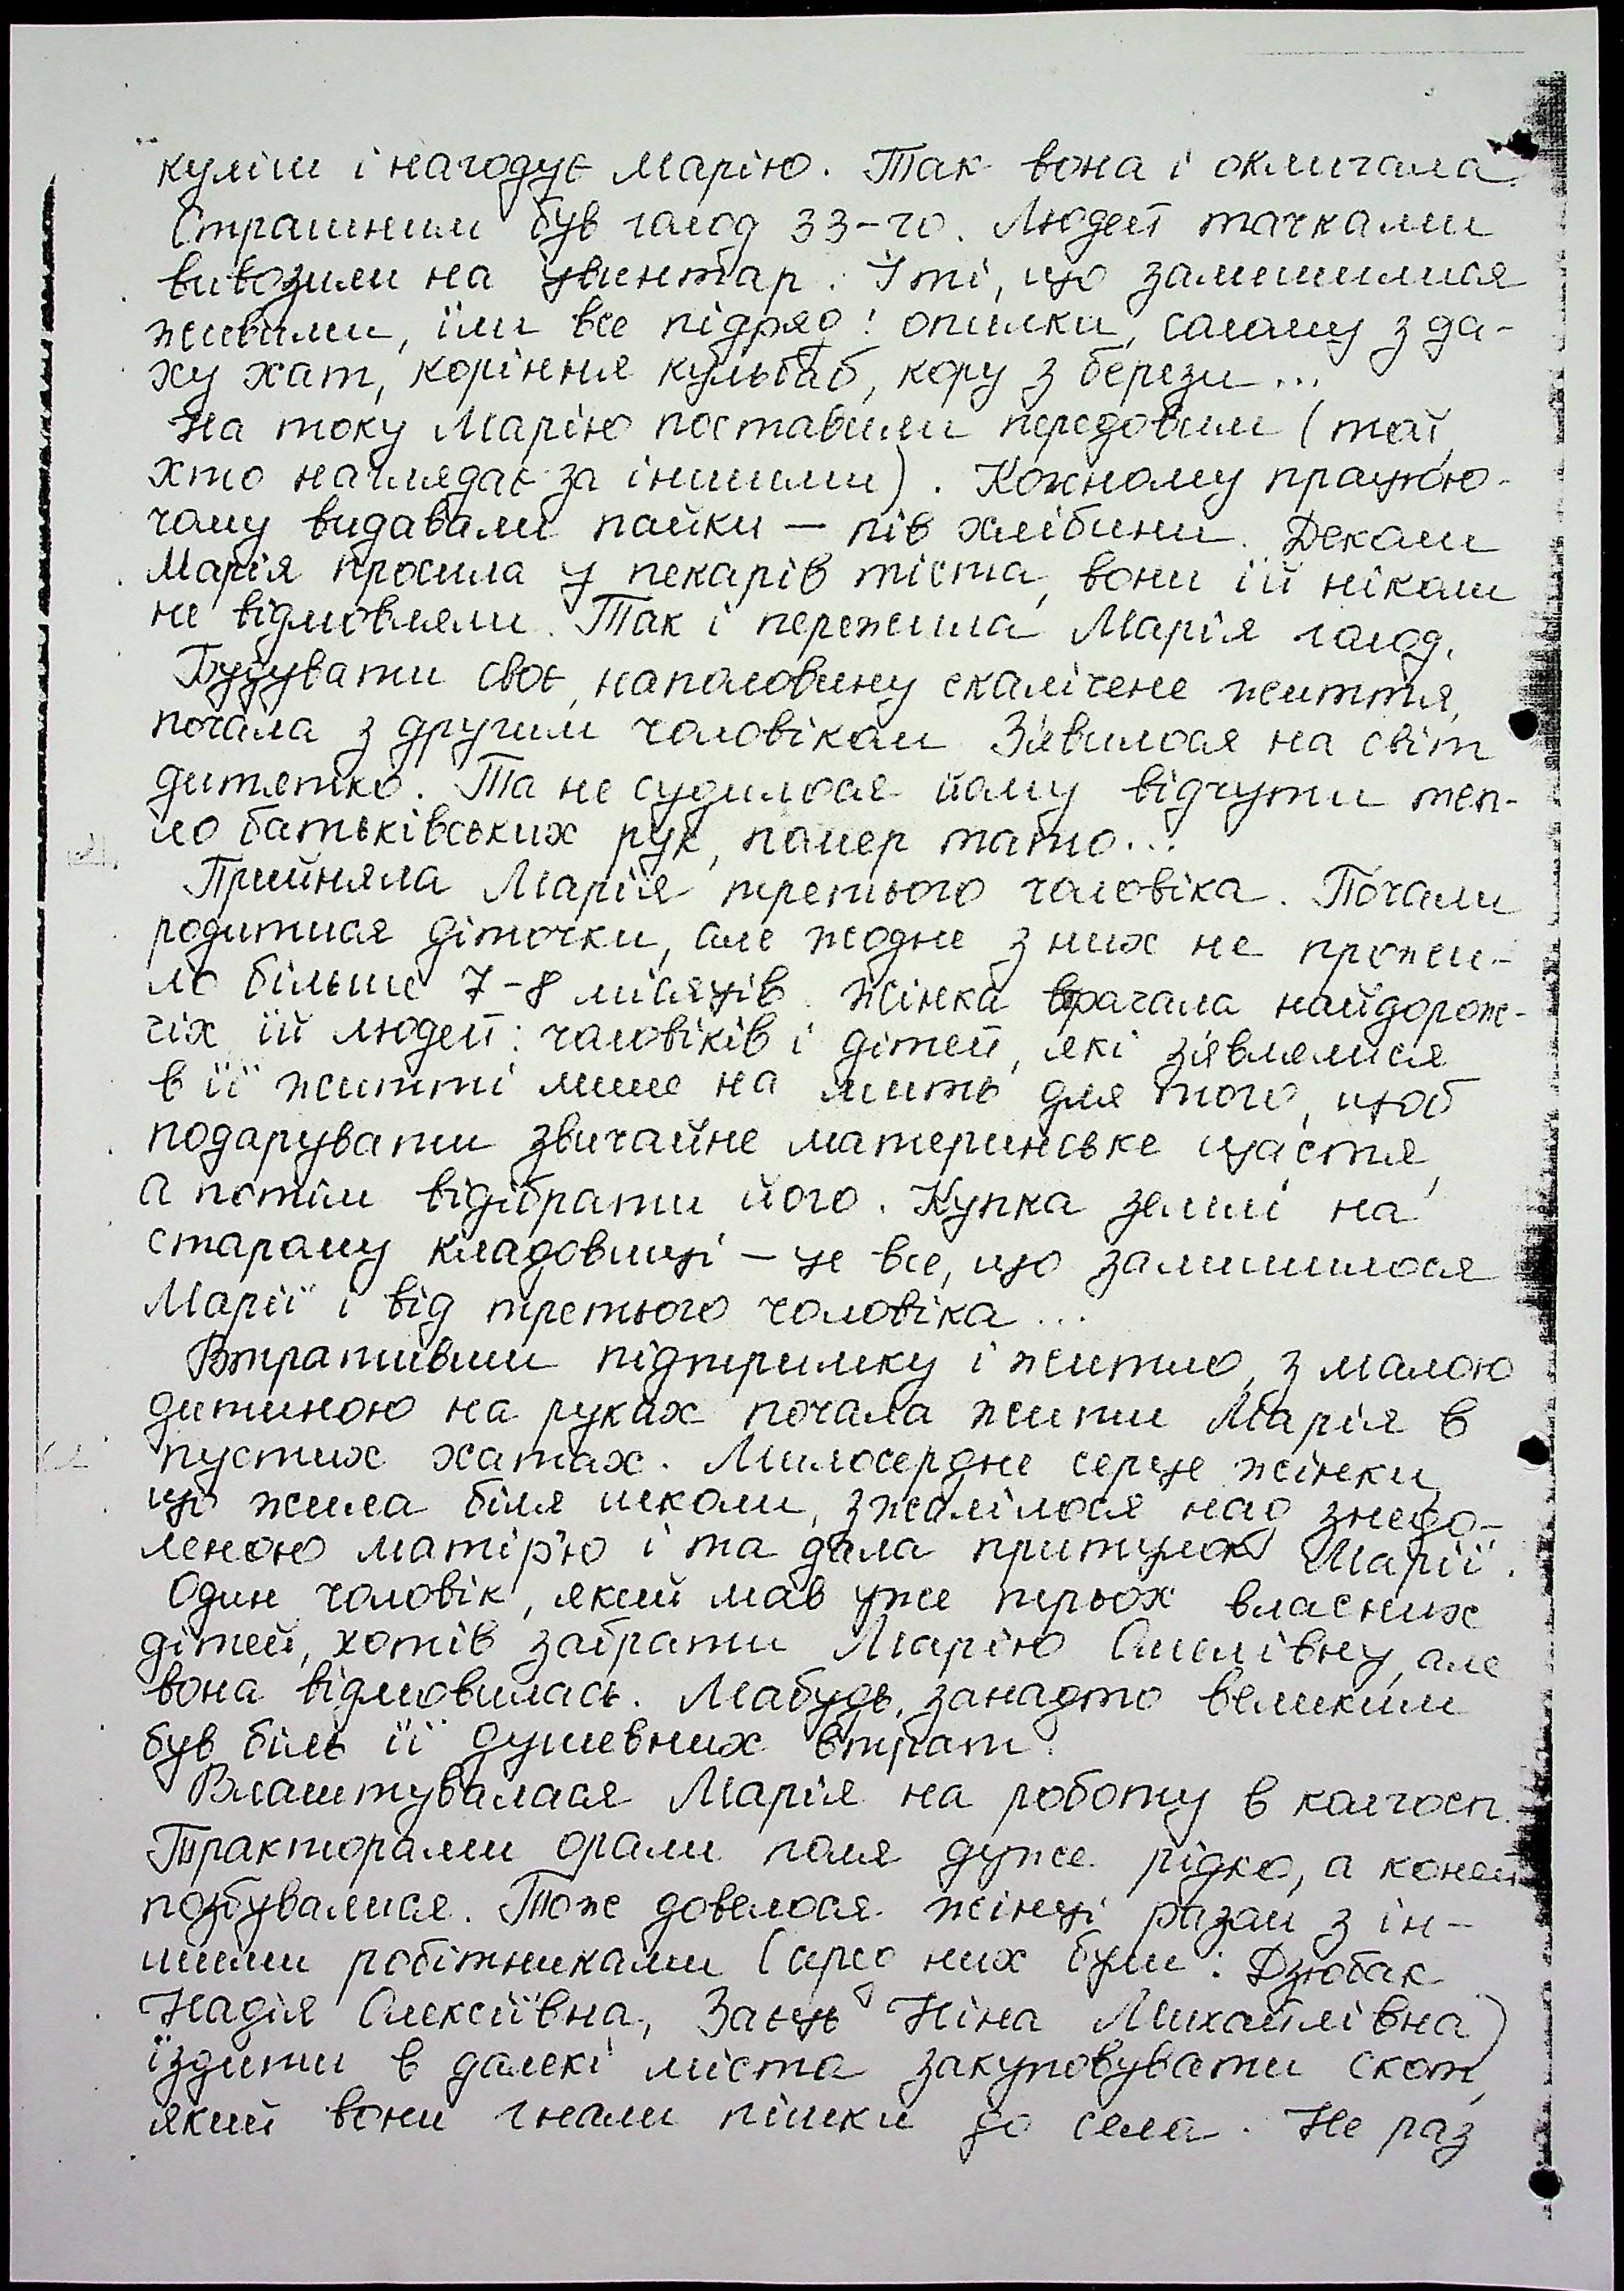 куліш і нагодує Марію. Так вона і оклигала.
Страшним був голод 33-го. Людей тачками
вивозили на цвинтар. І ті, що залишилися
живими, їли все підряд: опилки, солому з да-
ху хат, коріння кульбаб, кору з берези...
На току Марію поставили передовим (той,
хто наглядає за іншими). Кожному працюю-
чому видавали пайки – пів хлібини. Деколи
Марія просила у пекарів тіста, вони їй ніколи
не відмовляли. Так і пережила Марія голод.
Будувати своє, наполовину скалічене життя,
почала з другим чоловіком. Зявилося на світ
дитятко. Та не судилося йому відчути теп-
ло батьківських рук, помер тато...
Прийняла Марія третього чоловіка. Почали
родитися діточки, але жодне з них не прожи-
ло більше 7-8 місяців. Жінка втрачала найдорож-
чіх їй людей: чоловіків і дітей, які зявлялися
в її житті лише на мить для того, щоб
подарувати звичайне материнське щастя,
а потім відібрати його. Купка землі на
старому кладовищі – це все, що залишилося
Марії і від третього чоловіка...
Втративши підтримку і житло, з малою
дитиною на руках почала жити Марія в
пустих хатах. Милосердне серце жінки,
що жила біля школи, зжалілося над знедо-
леною матір'ю і та дала притулок Марії.
Один чоловік, який мав уже трьох власних
дітей, хотів забрати Марію Омелівну, але
вона відмовилась. Мабудь, занадто великим
був біль її душевних втрат.
Влаштувалася Марія на роботу в колгосп.
Тракторами орали поля дуже рідко, а коней
позбувалися. Тож довелося жінці разом з ін-
шими робітниками (серед них були: Дзюбак
Надія Олексіївна, Заєць Ніна Михайлівна)
їздити в далекі міста закуповувати скот,
який вони гнали пішки до села. Не раз